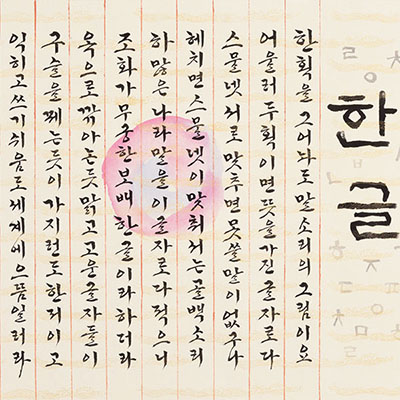 한글
한획을 그어놔도 말소리의 그림이요
어울러 두획이면 뜻을 가진 글자로다
스물넷 서로 맞추면 못쓸 말이 없구나
헤치면 스물넷이 맞취서는 골백소리
하많은 나라말을 이 글자로 다 적으니
조화가 무궁한 보배 한글이라 하더라
옥으로 깎아논듯 맑고 고운 글자들이
구슬을 꿰는듯이 가지런도 한저이고
익히고 쓰기 쉬움도 세계에 으뜸일러라